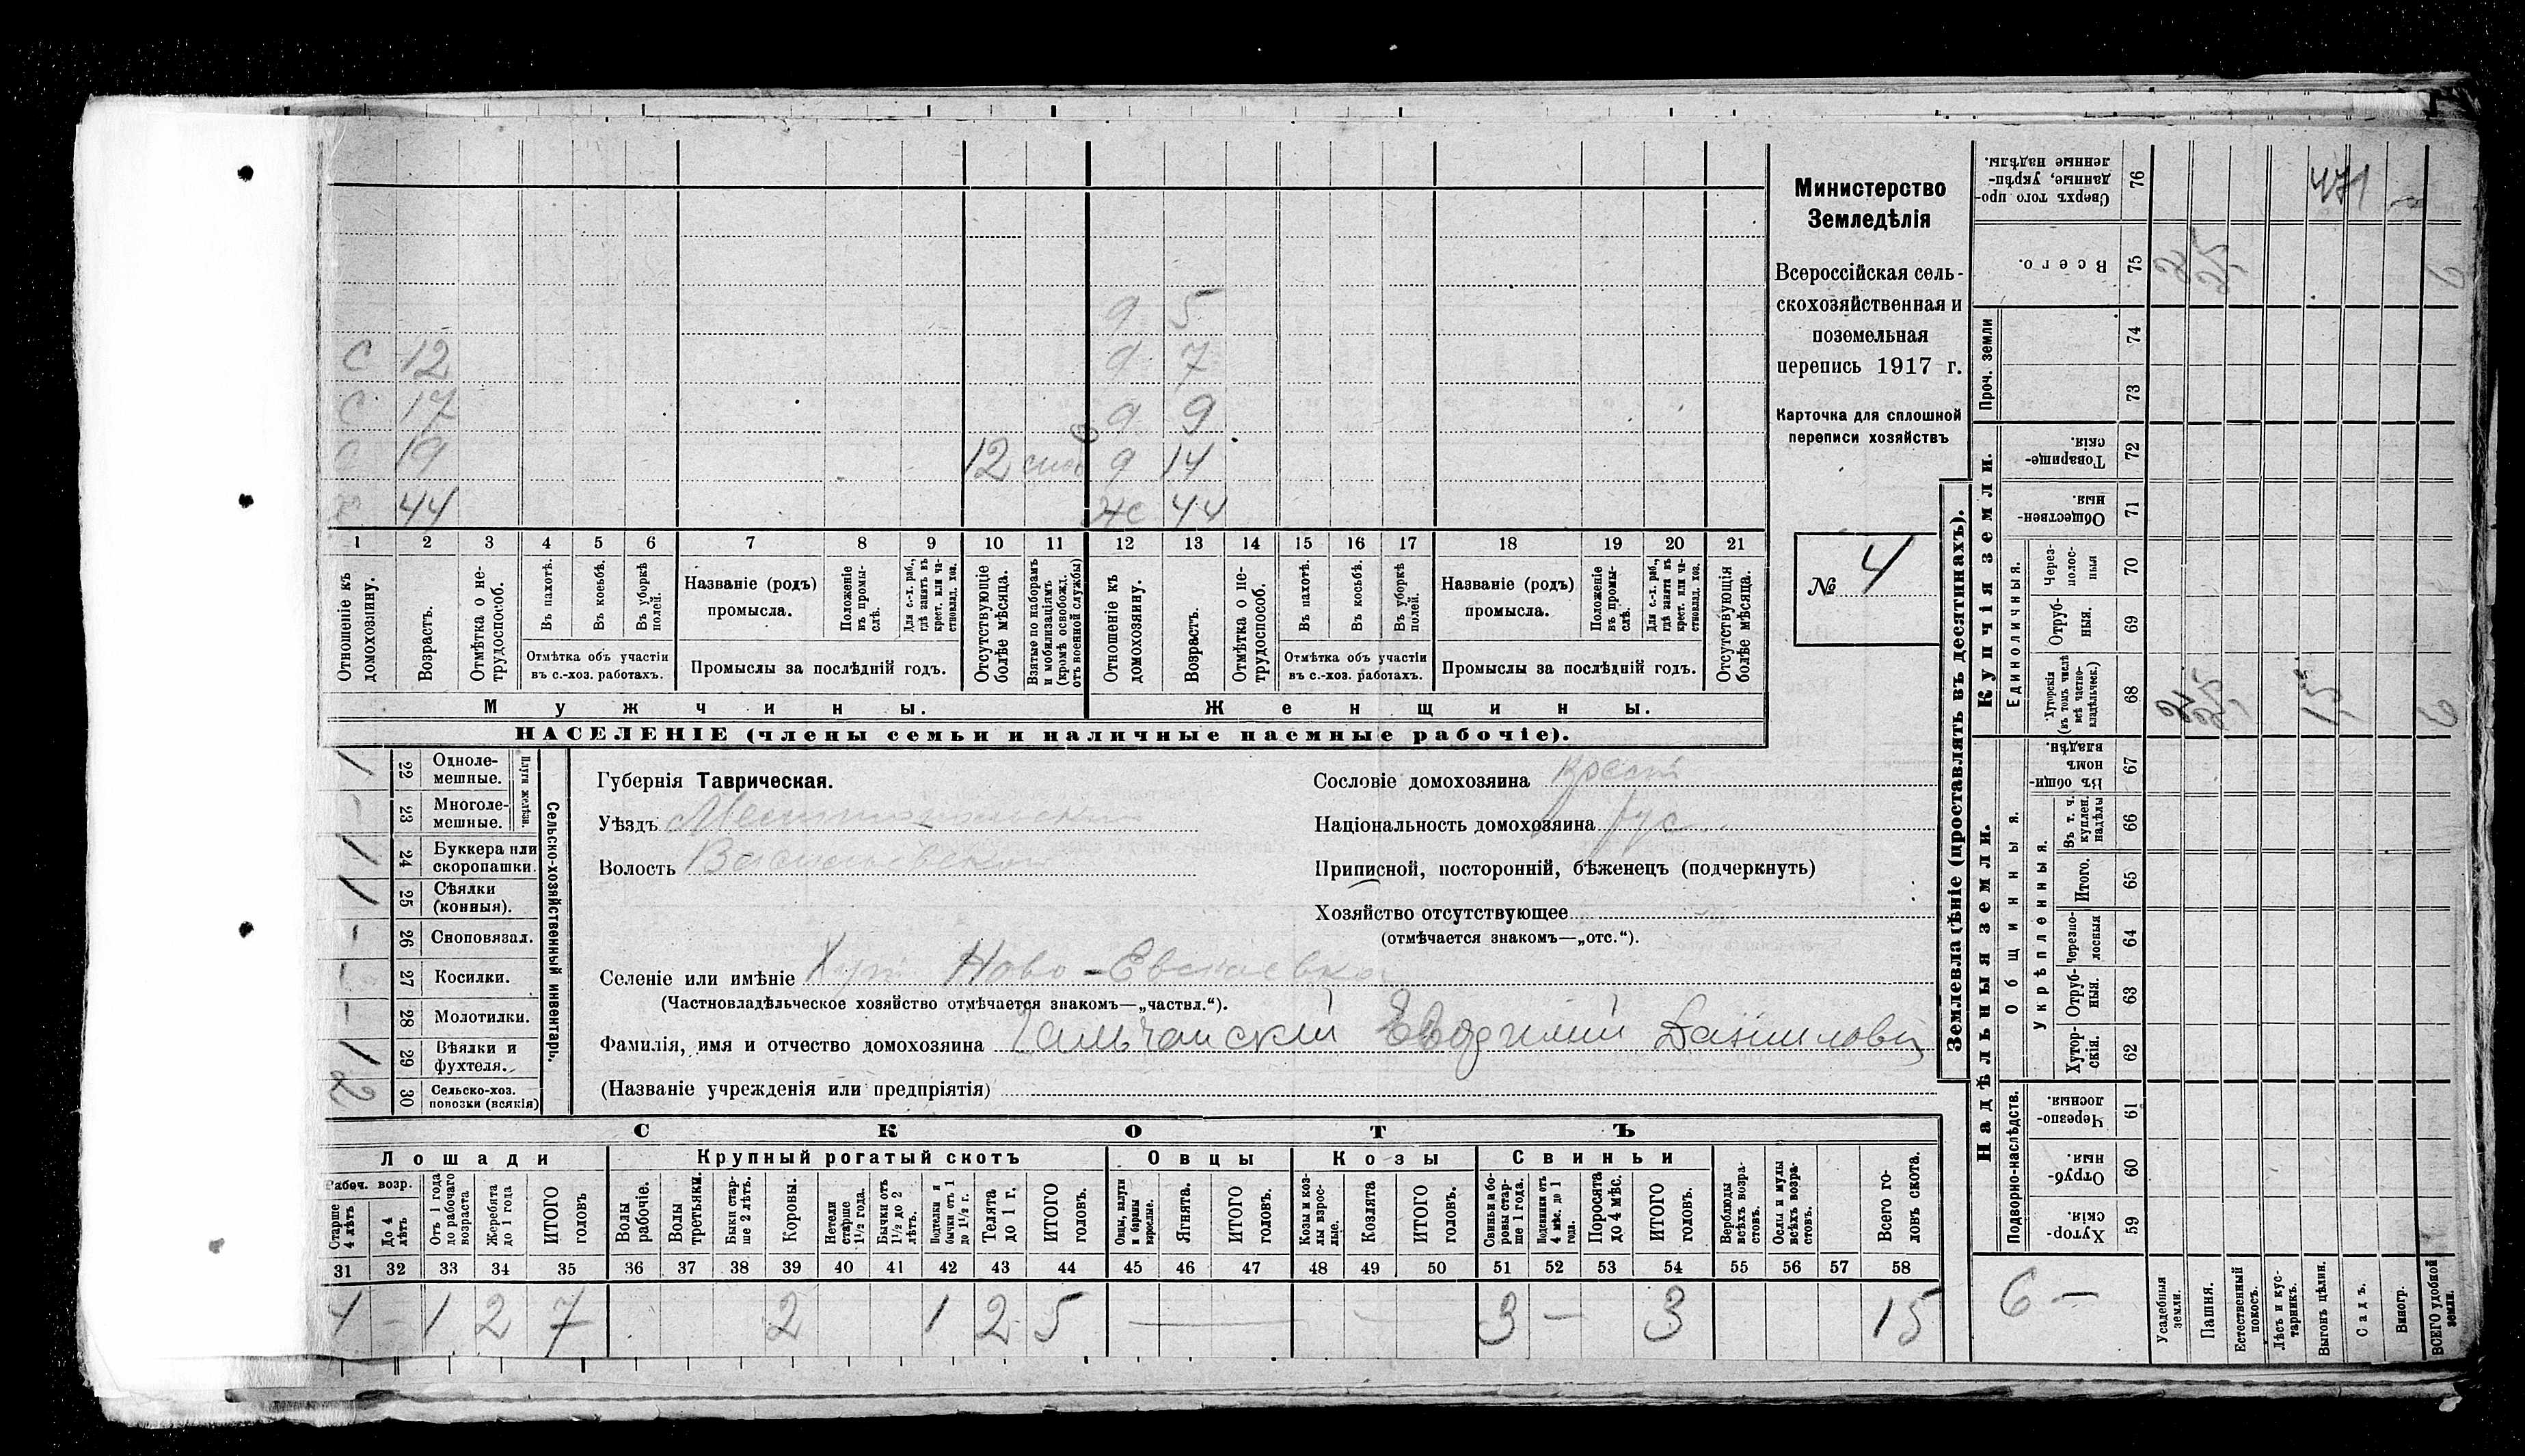 Министерство
Земледѣлія
Всероссійская сель-
скохозяйственная и
поземельная
перепись 1917 г.
Карточка для сплошной
переписи хозяйствъ
№ 4
9 5
С 12 9 7
С 17 9 9
С 19 12 9 14
Х 44 Ж 44
1 2 3 4 5 6 7 8 9 10 11 12 13 14 15 16 17 18 19 20 21
Отношеніе къ домохозяину.
Возрастъ.
Отмѣтка о не-трудоспособ.
Въ пахотѣ.
Въ косьбѣ.
Въ уборкѣ полей.
Отмѣтка объ участіи
въ с.-хоз. работахъ.
Названіе (родъ)
промысла.
Положеніе въ промы-слѣ.
Для с.-х. раб., гдѣ занятъ въ крест. или ча-стновлад. хоз.
Промыслы за послѣдній годъ.
Отсутствующіе болѣе мѣсяца.
Взятые по наборамъ и мобилизаціямъ (кромѣ освобожд. отъ военной службы)
Отношеніе къ домохозяину.
Возрастъ.
Отмѣтка о не-трудоспособ.
Въ пахотѣ.
Въ косьбѣ.
Въ уборкѣ полей.
Отмѣтка объ участіи
въ с.-хоз. работахъ.
Названіе (родъ)
промысла.
Положеніе въ промы-слѣ.
Для с.-х. раб., гдѣ занята въ крест. или ча-стновлад. хоз.
Промыслы за послѣдній годъ.
Отсутствующія болѣе мѣсяца.
Мужчины.
Женщины.
НАСЕЛЕНІЕ (члены семьи и наличные наемные рабочіе).
Сельско-хозяйственный инвентарь.
Плуги желѣзн.
1 22 Одноле-мешные.
- 23 Многоле-мешные.
1 24 Буккера или скоропашки.
1 25 Сѣялки (конныя).
- 26 Сноповязал.
- 27 Косилки.
- 28 Молотилки.
1 29 Вѣялки и фухтеля.
2 30 Сельско-хоз. повозки (всякія)
Губернія Таврическая.
Уѣздъ Мелитопольский
Волость Васильевская
Сословіе домохозяина крест
Національность домохозяина рус.
Приписной, посторонній, бѣженецъ (подчеркнуть)
Хозяйство отсутствующее
(отмѣчается знакомъ—„отс.“).
Селеніе или имѣніе Хут Ново-
(Частновладѣльческое хозяйство отмѣчается знакомъ—„частвл.“).
Фамилія, имя и отчество домохозяина Гальчанский Даниилович
(Названіе учрежденія или предпріятія)
СКОТЪ
Лошади
Рабоч. возр.
Старше 4 лѣтъ
До 4 лѣтъ
Отъ 1 года до рабочаго возраста
Жеребята до 1 года
ИТОГО головъ
Крупный рогатый скотъ
Волы рабочіе.
Волы третьяки.
Быки стар-ше 2 лѣтъ.
Коровы.
Нетели старше 1½ года.
Бычки отъ 1½ до 2 лѣтъ.
Подтелки и бычки отъ 1 до 1½ г.
Телята до 1 г.
ИТОГО головъ.
Овцы
Овцы, валухи и бараны взрослые.
Ягнята.
ИТОГО головъ.
Козы
Козы и коз-лы взрос-лые.
Козлята
ИТОГО головъ.
Свиньи
Свиньи и бо-ровы стар-ше 1 года.
Подсвинки отъ 4 мѣс. до 1 года.
Поросята до 4 мѣс.
ИТОГО головъ.
Верблюды всѣхъ возра-стовъ.
Ослы и мулы всѣхъ возра-стовъ.
Всего го-ловъ скота.
31 32 33 34 35 36 37 38 39 40 41 42 43 44 45 46 47 48 49 50 51 52 53 54 55 56 57 58
4 - 1 2 7 2 1 2 5 — - 3 — 3 15
Землевладѣніе (проставлять въ десятинахъ).
Купчія земли.
Надѣльныя земли.
Сверхъ того про-данные, укрѣп-ленные надѣлы. 76 471
Всего. 75
Проч. земли 74 73
Товарище-скія. 72
Обществен-ныя 71
Единоличныя.
Через-полос-ныя 70
Отруб-ныя. 69
Хуторскія (въ томъ числѣ всѣ частно-владѣльческ.) 68
Общинныя.
Въ общин-номъ владѣн. 67
Укрѣпленныя.
Въ т. ч. куплен. надѣлы 66
Итого. 65
Черезпо-лосныя 64
Отруб-ныя. 63
Хутор-скія. 62
Подворно-наслѣдств.
Черезпо-лосныя. 61
Отруб-ныя. 60
Хутор-скія. 59
6 —
Усадебныя земли.
Пашня.
Естественный покосъ.
Лѣсъ и кус-тарникъ.
Выгонъ цѣлин.
Садъ.
Виногр.
ВСЕГО удобной земли.